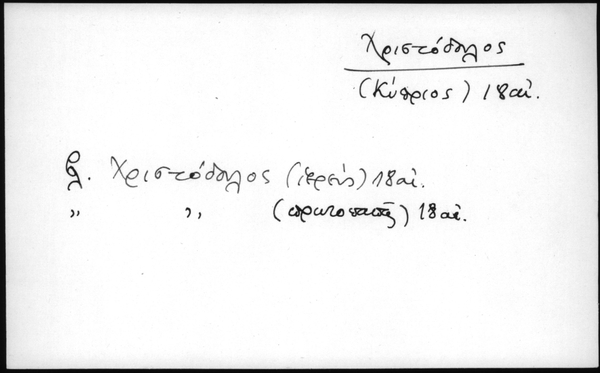 Χριστόδουλος
(Κύπριος) 18 αἰ.
βλ. Χριστόδουλος (ἱερεύς) 18 αἰ.
" " (πρωτοπαπᾶς) 18 αἰ.